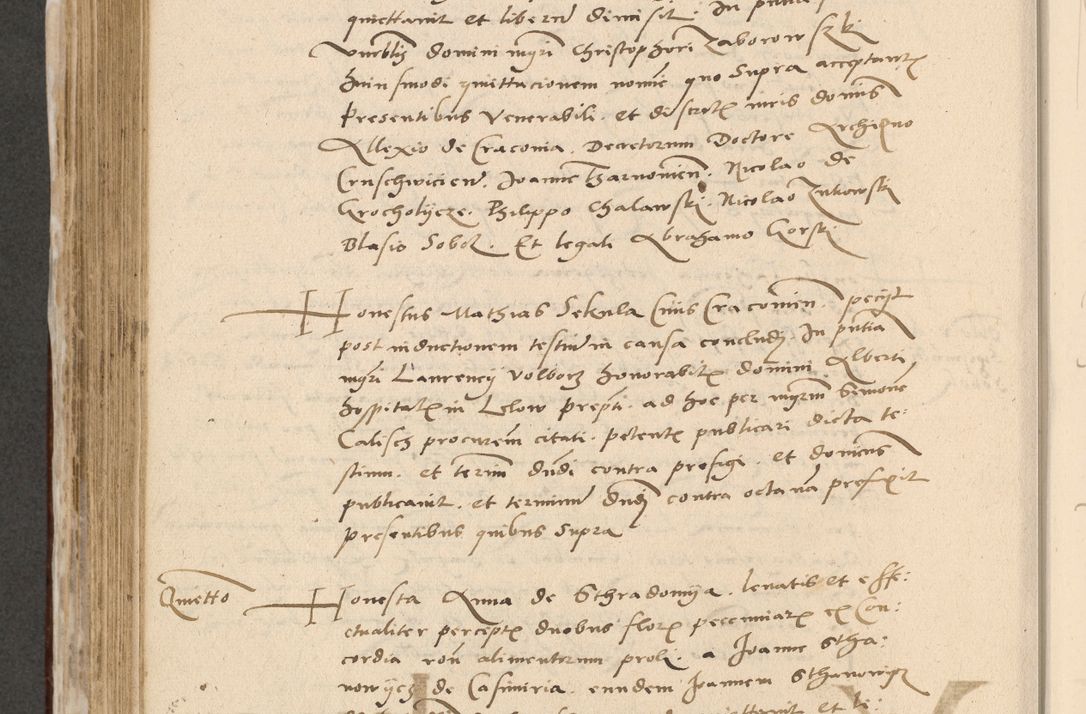 quiettavit et liberum dimisit. In pntia
Venerblis domini mgri Christophori Zaborowszki
huiusmodi quittacionem nomine quo supra acceptantis
Presentibus Venerabili et discretis viris dominis
Allexio de Cracovia. Decretorum Doctore Archipno
Curschwicien. Joanne Tharnowien. Nicolao de
Grocholycze. Philippo Chalawski. Nicolao Zukowski
Blasio Sobol. Et legali Abrahamo Gorski
Honestus Mathias Sekula Civis Cracovien. peciit
post inductionem testium in causa concludi. In pntia
mgri Laurencij Volborz honorabilis domini Alberti
hospitalis in Lelow prepti. ad hoc per mgrum Simonem
Calisch procurem citati. petentis publicari dicta te:
stium. et termin dndi contra prefigi. et dominus
publicavit. et terminum dndi contra octavam prefixit
presentibus quibus supra
Quietto
Honesta Anna de Sthradomija. levatis et effe:
ctualiter perceptis duobus floris pecuniarum ex Con:
cordia ron alimentorum proli. a Joanne Stha:
nowijcz de Casimiria. eundem Joannem Sthanowicz
et li: